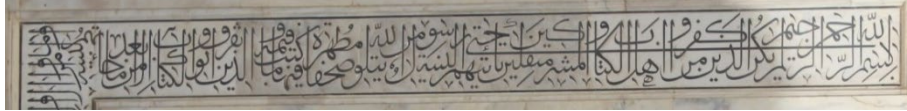 بسم الله الرحمن الرحيم لم يكن الذين كفروا من أهل الكتاب والمشركين منفكين حتى تأتيهم البينة رسول من الله يتلو صحفا مطهرة فيها كتب قيمة وما تفرق الذين أوتوا الكتاب إلا من بعد ما